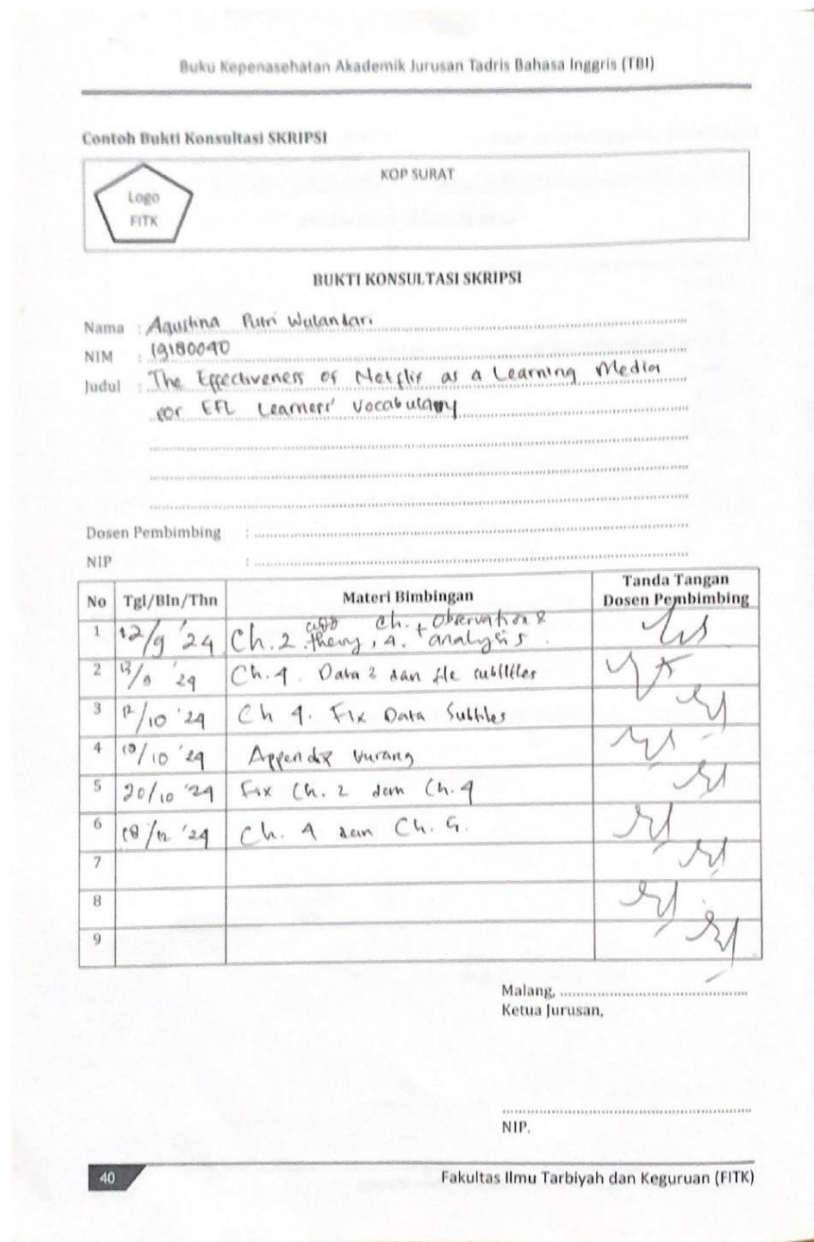 Buku Kepenasehatan Akademik Jurusan Tadris Bahasa Inggris (TBI)
Contoh Bukti Konsultasi SKRIPSI
KOP SURAT
Logo
FITK
BUKTI KONSULTASI SKRIPSI
Nama : Agustina Putri Wulandari
NIM : 19180040
Judul : The Effectiveness of Netflix as a Learning Media
for EFL Learners' Vocabulary
Dosen Pembimbing :
NIP :
No Tgl/Bln/Thn Materi Bimbingan Tanda Tangan Dosen Pembimbing
1 12/9 '24 Ch. 2 add theory, Ch. 4. + observation & analysis.
2 /9 '24 Ch. 4. Data 2 dan file subtitles
3 12/10 '24 Ch 4. Fix Data Subtitles
4 /10 '24 Appendix kurang
5 20/10 '24 Fix Ch. 2 dan Ch. 4
6 18/12 '24 Ch. 4 dan Ch. 5.
7
8
9
Malang,
Ketua Jurusan,
NIP.
40 Fakultas Ilmu Tarbiyah dan Keguruan (FITK)